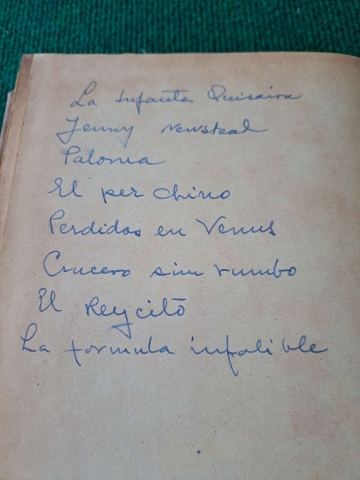 La Infanta
Jenny Newsteal
Paloma
El per chino
Perdidos en Venus
Crucero sin rumbo
El Reycito
La formula infalible